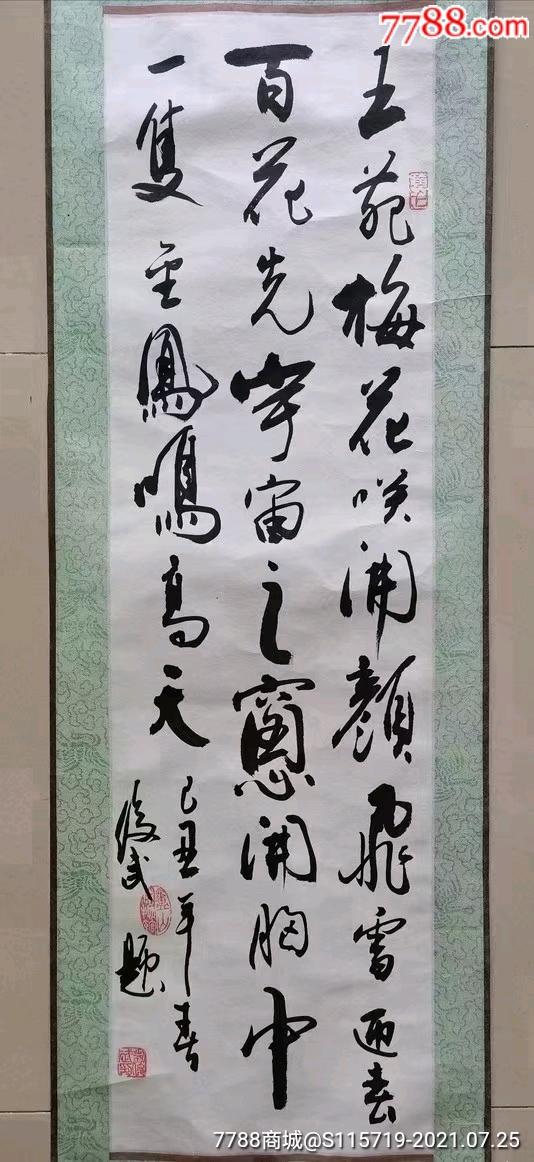 7788.com
玉苑梅花咲開顔飛雪迎春
百花先宇宙之窻開胸中
一隻金鳳鳴高天
己丑年春
俊武題
7788商城@S115719-2021.07.25